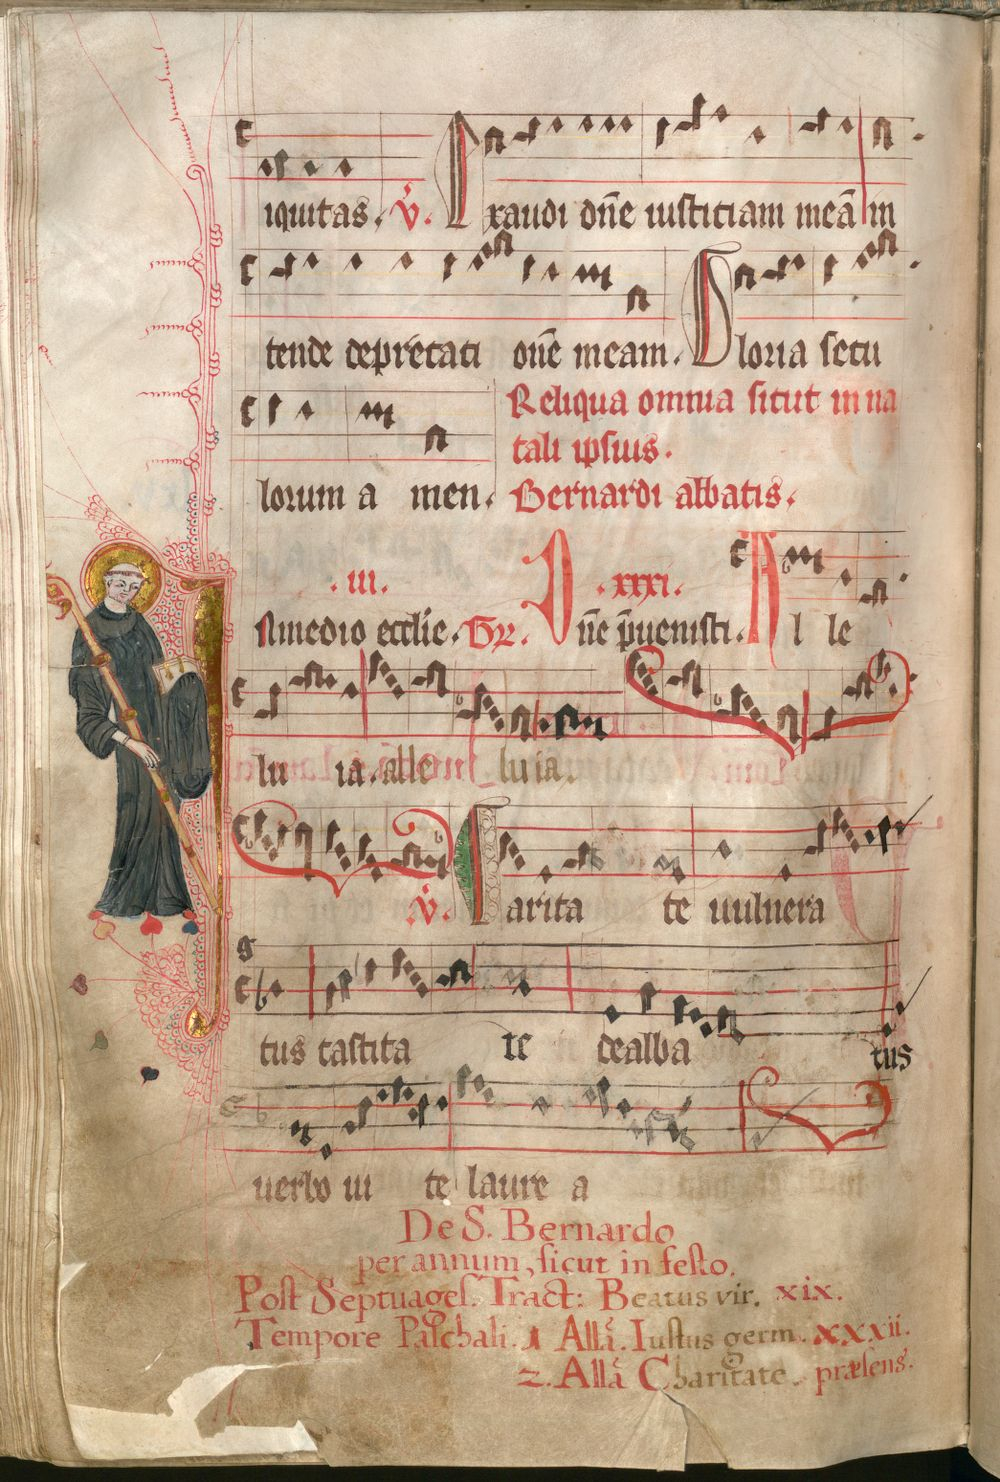 iquitas. v̓. Exaudi dn̄e iusticiam meā in
tende deprecati onē meam. Gloria secu
Reliqua omnia sicut in na
tali ipsius.
lorum a men. Bernardi abbatis.
.iii. .xxxi.
Inmedio eccl̄ie. Gr. Dn̄e p̄uenisti. Al le
lu ia. alle luia.
v̓. Carita te uulnera
tus castita te dealba tus
uerbo ui te laure a
De S. Bernardo
per annum, sicut in festo.
Post Septuages. Tract: Beatus vir. xix.
Tempore Paschali. 1 Allā. Iustus germ. xxxii.
2. Allā Charitate. præsens.